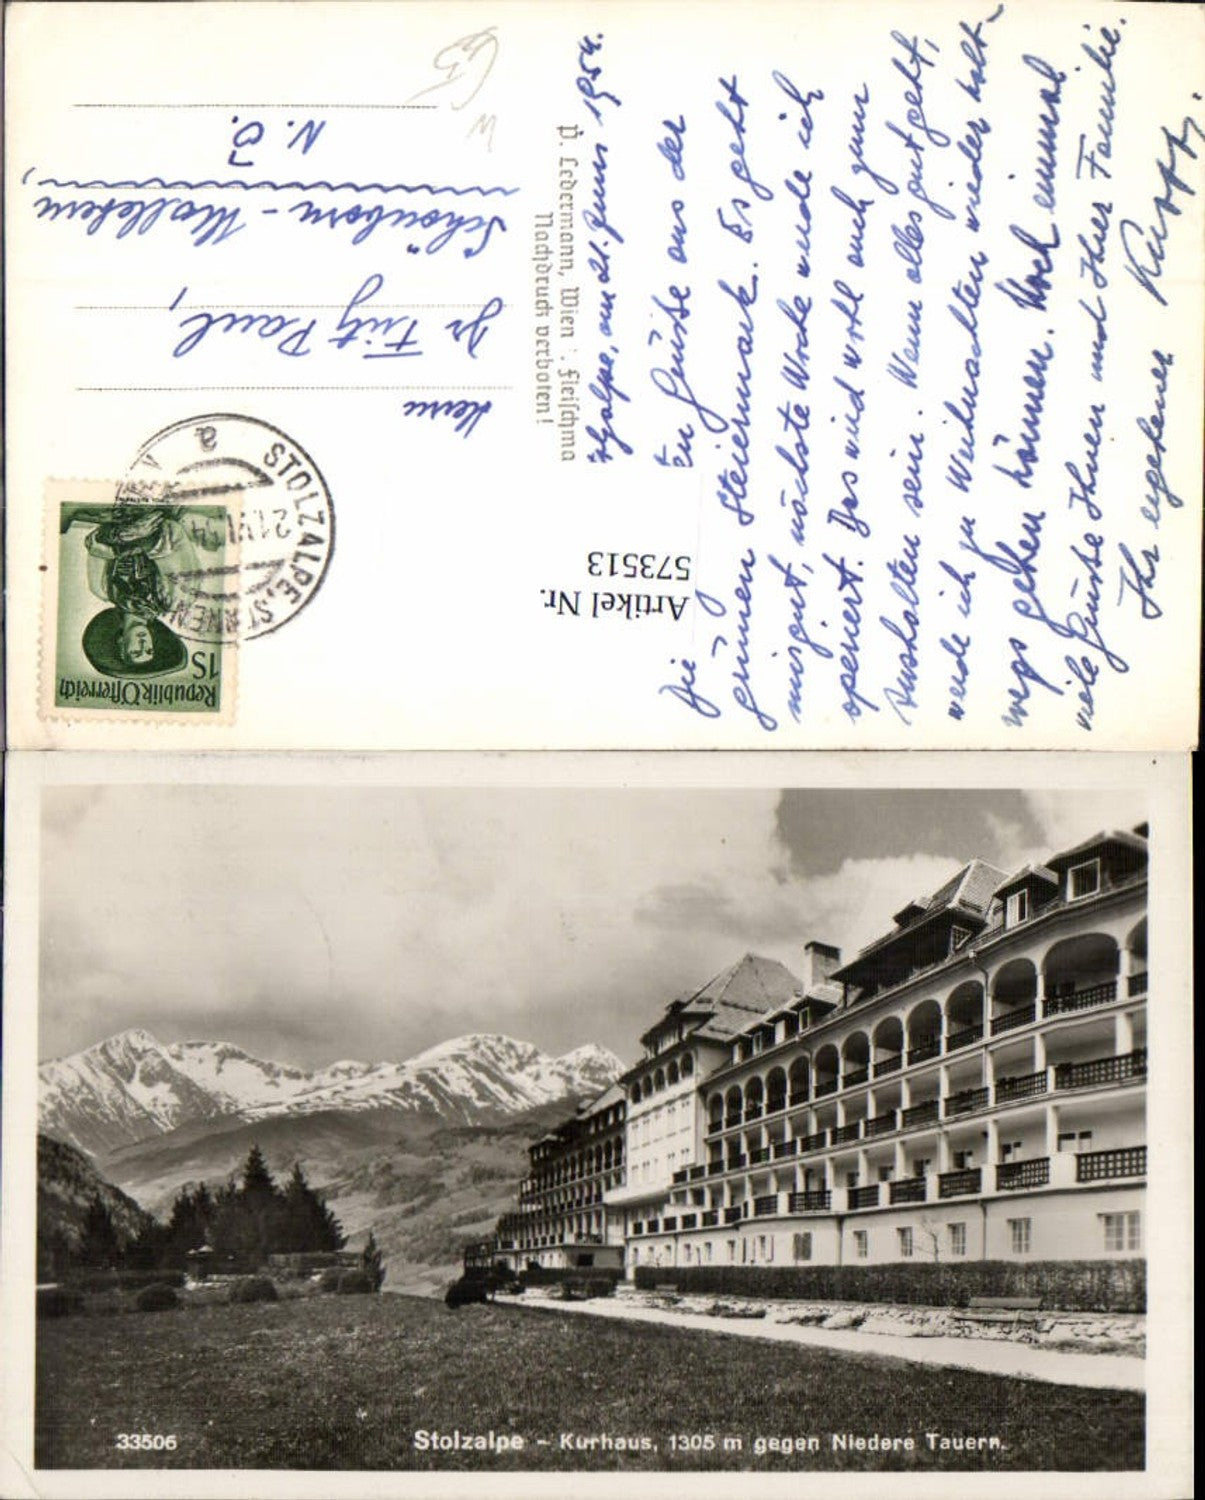 Stolzalpe, am 21. Juni 1954.
Die 
grünen Steiermark. Es geht
mir gut, nächste Woche werde ich
operiert. Das wird wohl auch zum
Aushalten sein. Wenn alles gut geht,
werde ich zu Weihnachten wieder halt-
wegs gehen können. Noch einmal
viele Grüße Ihnen und Ihrer Familie.
Ihr ergebener
Grüße aus der
P. Ledermann, Wien
Nachdruck verboten!
Herrn
Dr Fritz Paul,
Schönborn - Mallebern,
N. Ö.
Artikel Nr.
573513
Republik Österreich
1S
STOLZALPE,
21.VI.54
a
33506
Stolzalpe - Kurhaus, 1305 m gegen Niedere Tauern.